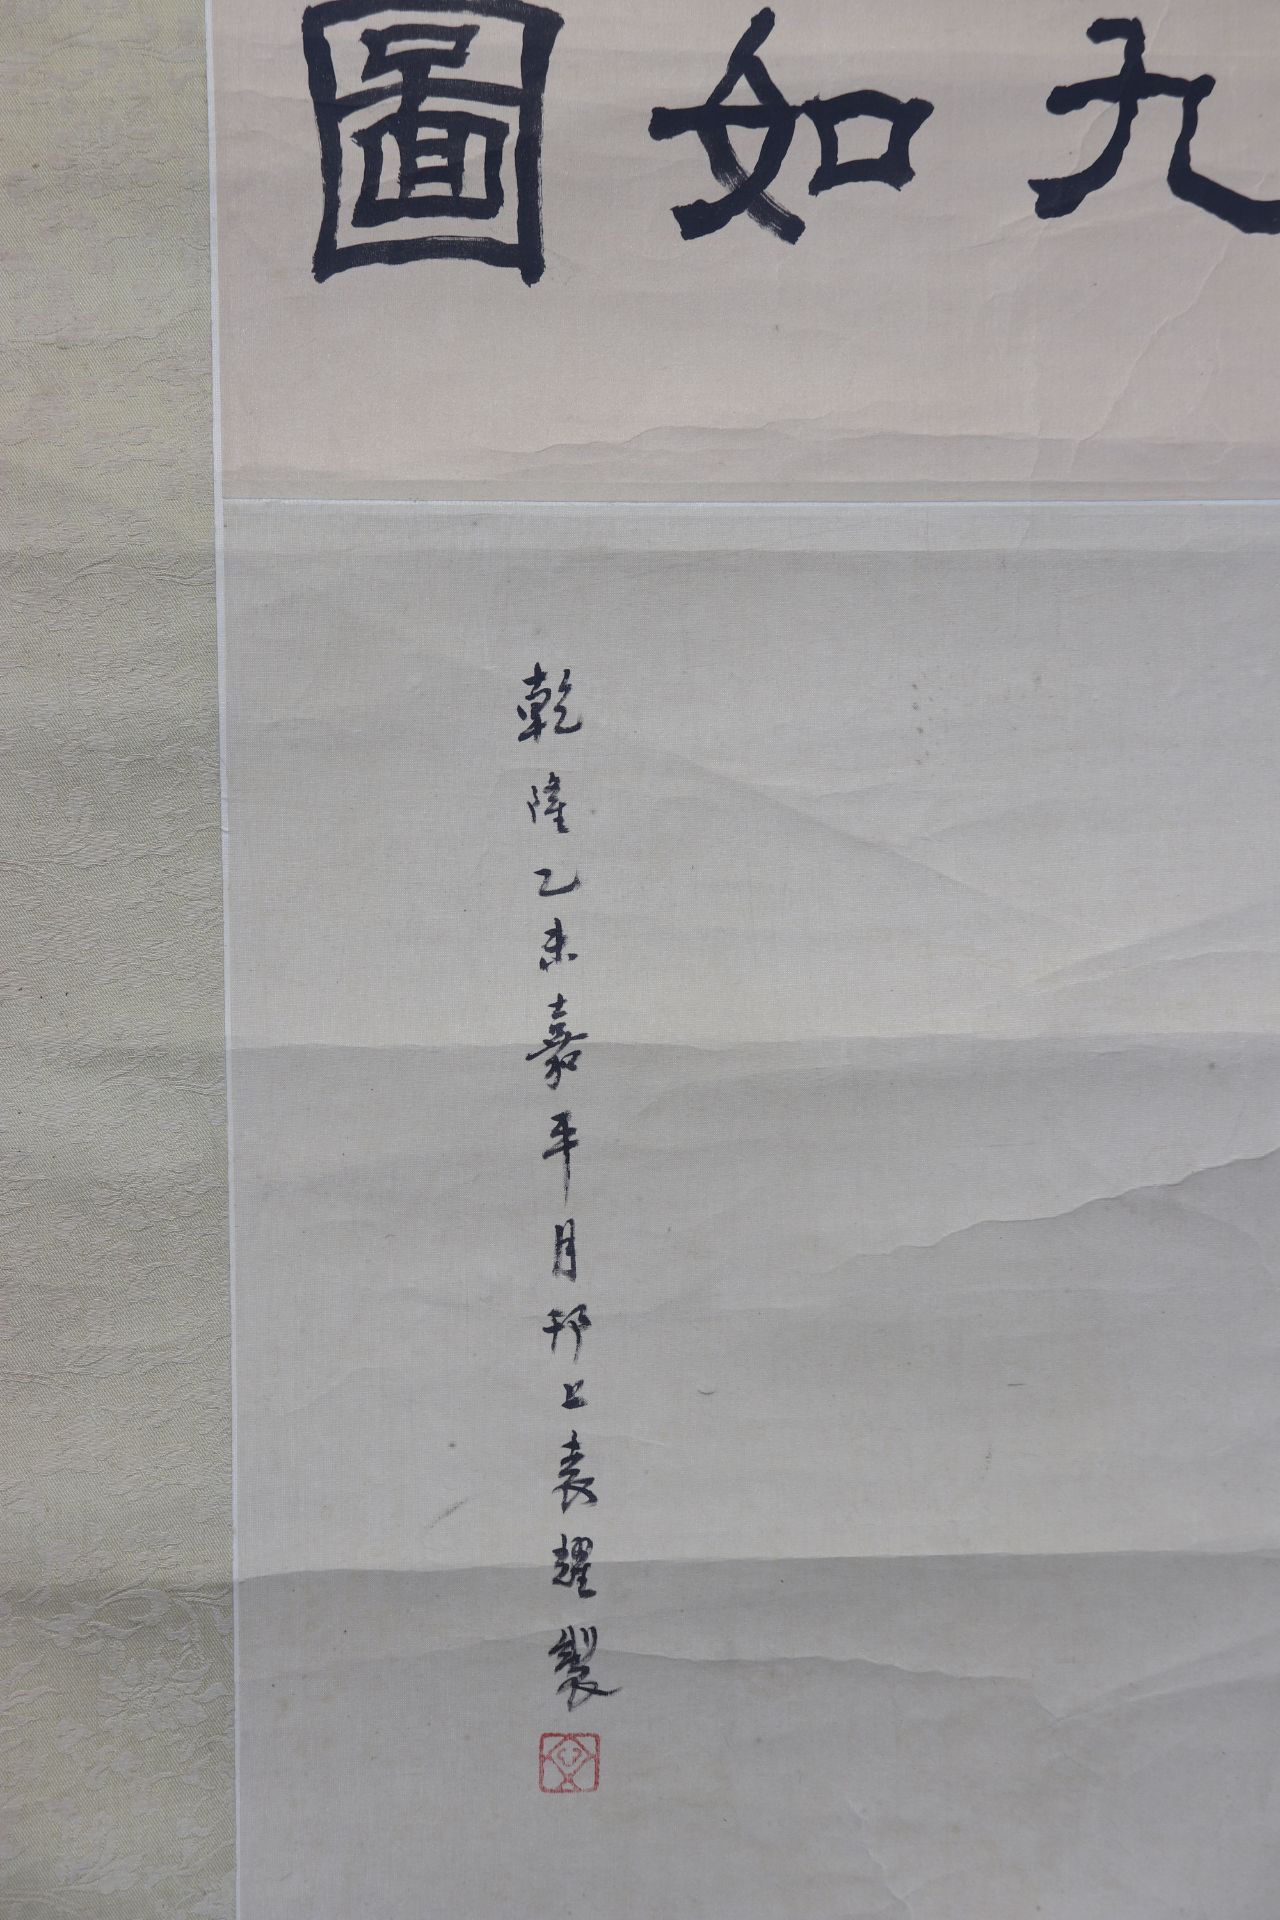 九如圖
乾隆乙未嘉平月邗上袁耀製